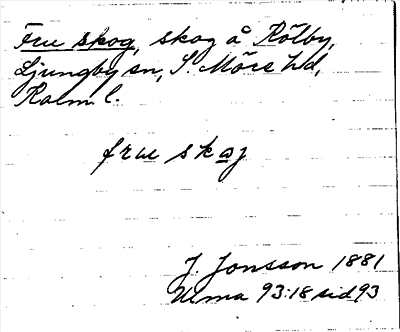 Frue skog, skog å Rölby,
Ljungby sn, S. Möre hd,
Kalm l.
frue skog
J. Jonsson 1881
Ulma 93:18 sid 93